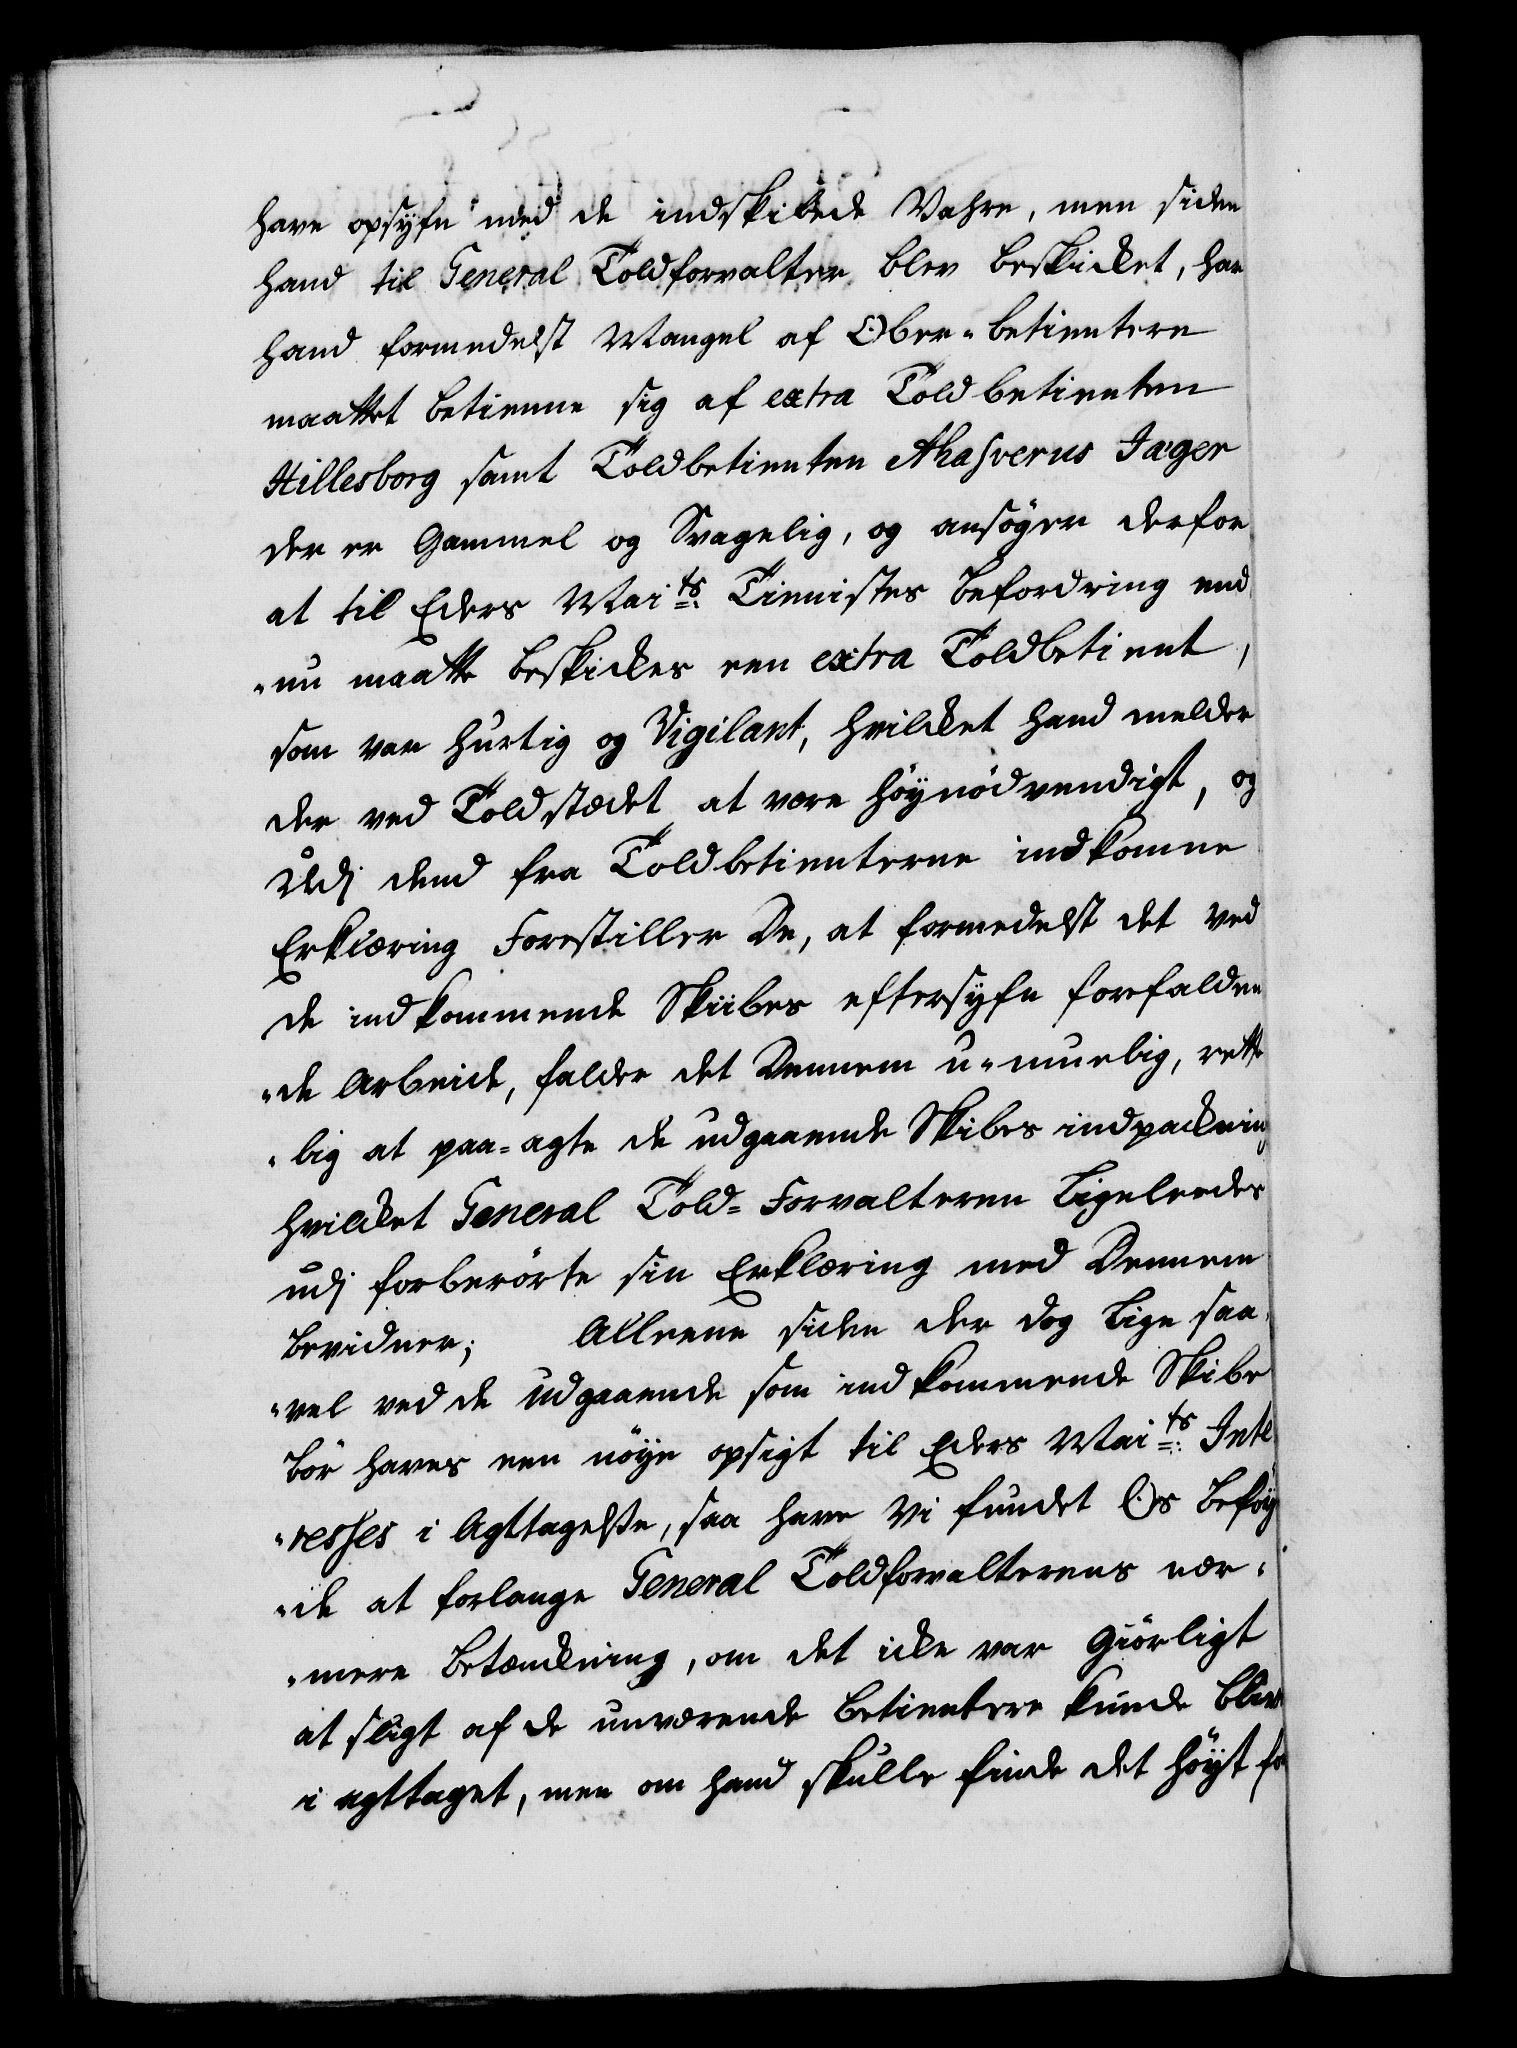 have opsyn med de indskibede Vahre, men siden
hand til General Toldforvalter blev beskicket, har
hand formedelst Mangel af Ober-betientere
maattet betienne sig af extra Toldbetienten
Hillesborg samt Toldbetienten Ahasverus Jæger
der er Gammel og Svagelig, og ansöger derfor
at til Eders Mai:ts Tienistes befordring end
"nu maatte beskickes een extra Toldbetient,
som var hurtig og Vigilant, hvilcket hand melder
der ved Toldstædet at være höynödvendigt, og
Udj dend fra Toldbetienterne indkomne
Erklæring Forestiller De, at formedelst det ved
de indkommende Skiibes eftersyn forefalden
"de Arbeide, falder det Dennem u-muelig, rette
"lig at paa-agte de udgaaende Skibes indpackning
hvilcket General Told-Forvalteren Ligeleedes
udj forberörte sin Erklæring med Dennem
bevidner; Alleene siden der dog Lige saa
"vel ved de udgaaende som indkommende Skibe
bör haves een nöye opsigt til Eders Mai:ts Inte
"resses i Agttagelse, saa have Vi fundet Os beföy
"de at forlange General Toldforvalterens nær-
"mere betænckning, om det icke var Giörligt
at sligt af de nuværende betientere kunde blive
i agttaget, men om hand skulle finde det höyt for